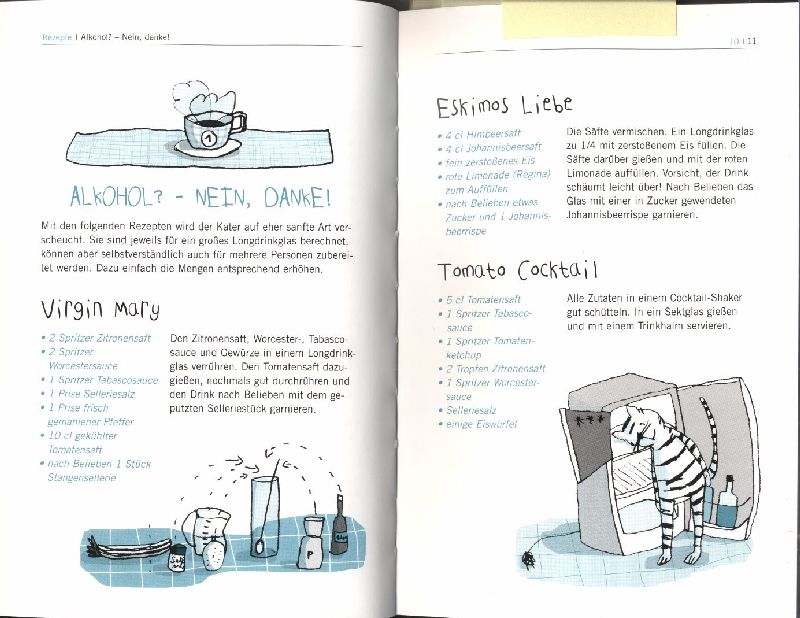 Rezepte | Alkohol? – Nein, danke!
1
ALKOHOL? - NEIN, DANKE!
Mit den folgenden Rezepten wird der Kater auf eher sanfte Art ver-
scheucht. Sie sind jeweils für ein großes Longdrinkglas berechnet,
können aber selbstverständlich auch für mehrere Personen zuberei-
tet werden. Dazu einfach die Mengen entsprechend erhöhen.
Virgin Mary
• 2 Spritzer Zitronensaft
• 2 Spritzer
Worcestersauce
• 1 Spritzer Tabascosauce
• 1 Prise Selleriesalz
• 1 Prise frisch
gemahlener Pfeffer
• 10 cl gekühlter
Tomatensaft
• nach Belieben 1 Stück
Stangensellerie
Den Zitronensaft, Worcester-, Tabasco-
sauce und Gewürze in einem Longdrink-
glas verrühren. Den Tomatensaft dazu-
gießen, nochmals gut durchrühren und
den Drink nach Belieben mit dem ge-
putzten Selleriestück garnieren.
P
10 | 11
Eskimos Liebe
• 4 cl Himbeersaft
• 4 cl Johannisbeersaft
• fein zerstoßenes Eis
• rote Limonade (Regina)
zum Auffüllen
• nach Belieben etwas
Zucker und 1 Johannis-
beerrispe
Die Säfte vermischen. Ein Longdrinkglas
zu 1/4 mit zerstoßenem Eis füllen. Die
Säfte darüber gießen und mit der roten
Limonade auffüllen. Vorsicht, der Drink
schäumt leicht über! Nach Belieben das
Glas mit einer in Zucker gewendeten
Johannisbeerrispe garnieren.
Tomato Cocktail
• 5 cl Tomatensaft
• 1 Spritzer Tabasco-
sauce
• 1 Spritzer Tomaten-
ketchup
• 2 Tropfen Zitronensaft
• 1 Spritzer Worcester-
sauce
• Selleriesalz
• einige Eiswürfel
Alle Zutaten in einem Cocktail-Shaker
gut schütteln. In ein Sektglas gießen
und mit einem Trinkhalm servieren.